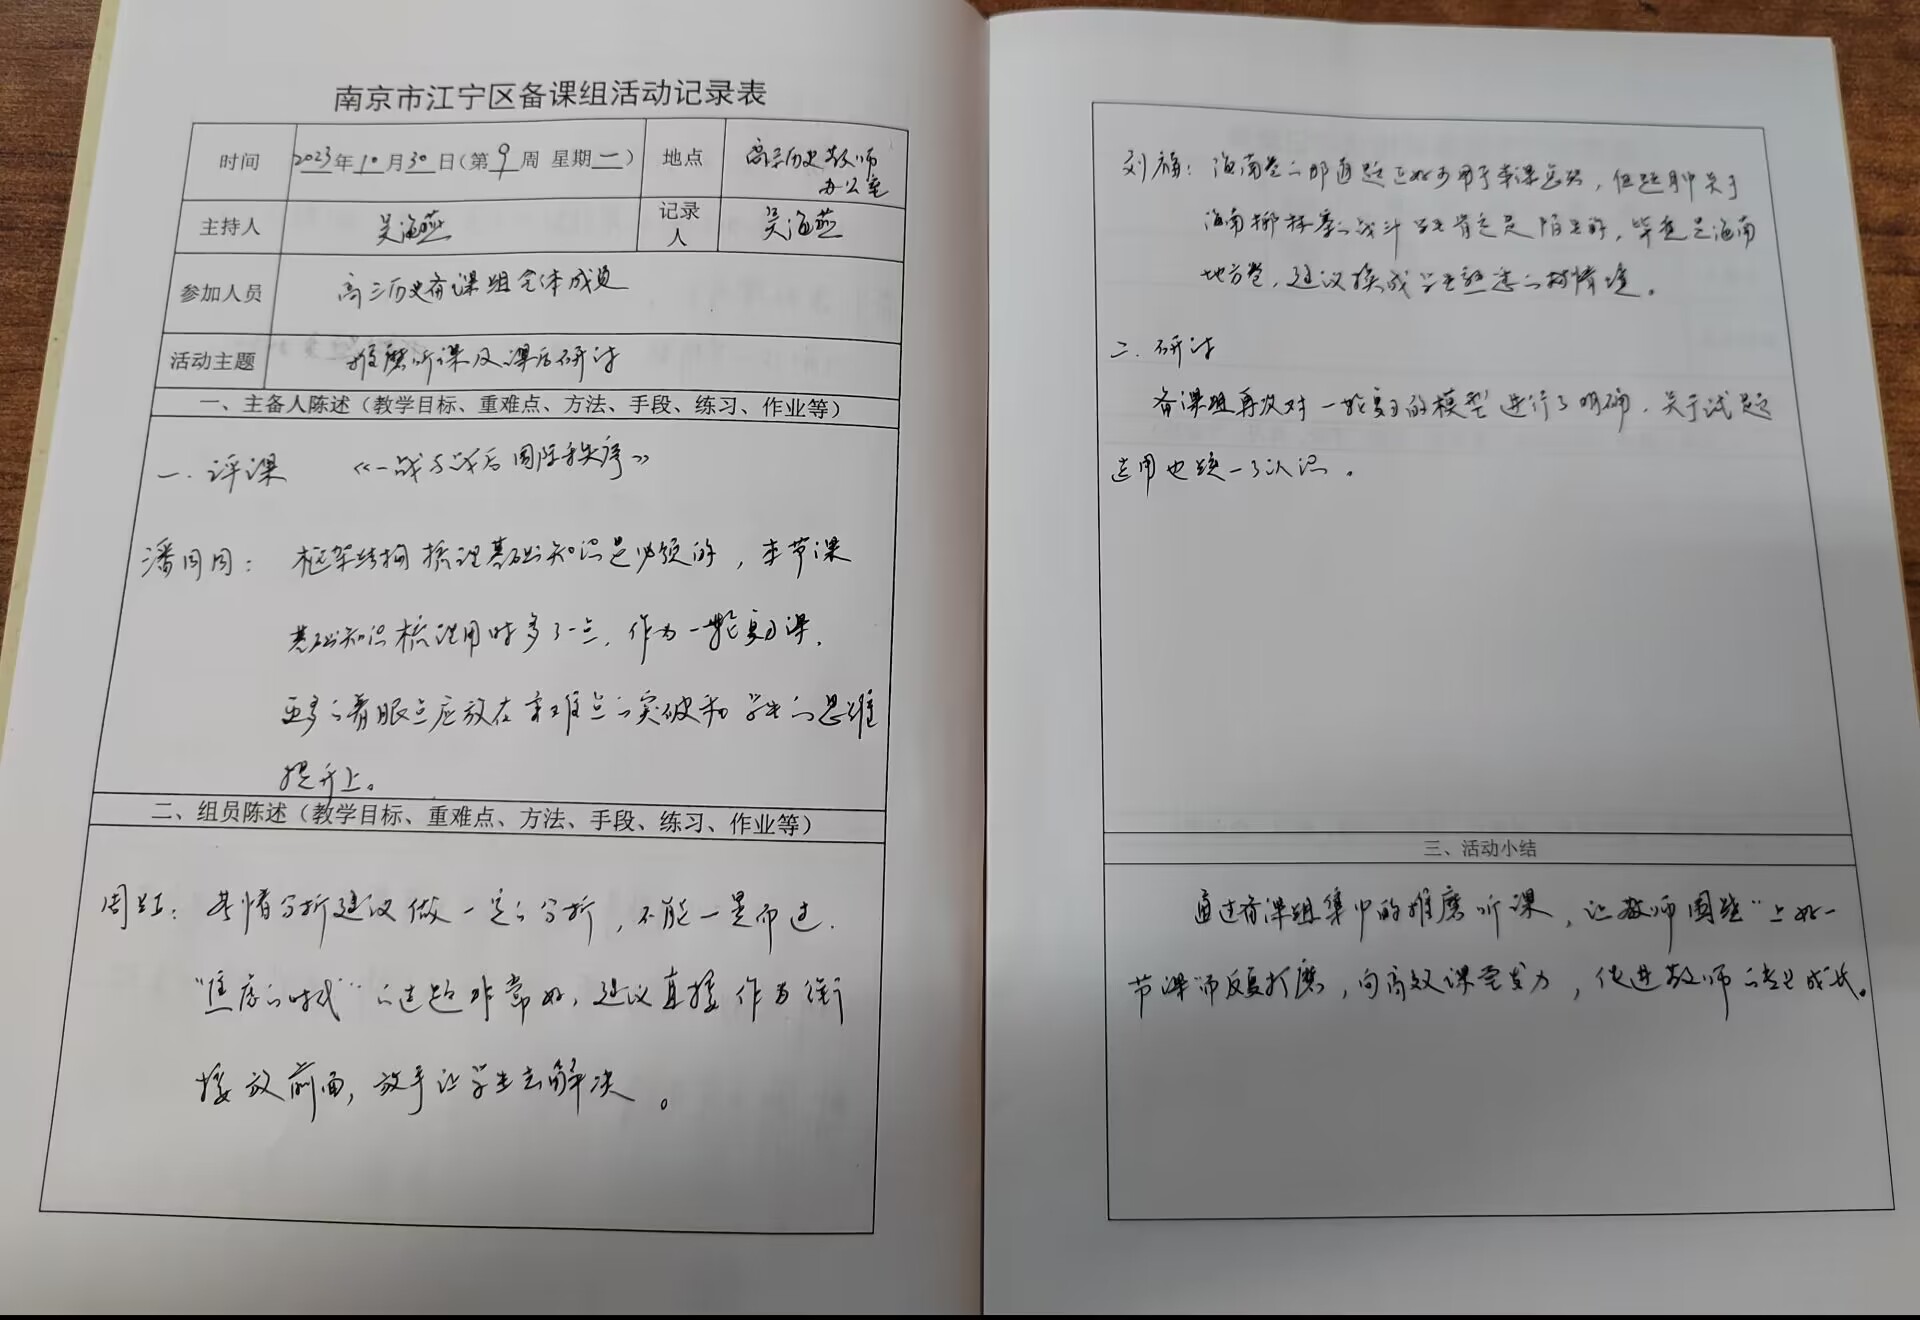 南京市江宁区备课组活动记录表
时间 2023年10月30日(第9周 星期一) 地点 高三历史教师
办公室
主持人 吴海燕 记录人 吴海燕
参加人员 高三历史备课组全体成员
活动主题 推磨听课及课后研讨
一、主备人陈述（教学目标、重难点、方法、手段、练习、作业等）
一.评课 《一战与战后国际秩序》
潘同同： 框架结构梳理基础知识是必须的，本节课
基础知识梳理用时多了一点，作为一轮复习课，
更多的着眼点应放在重难点的突破和学生的思维
提升上。
二、组员陈述（教学目标、重难点、方法、手段、练习、作业等）
周 ：考情分析建议做一定的分析，不能一晃而过.
“焦虑的时代”的选题非常好，建议直接作为衔
接放前面，放手让学生去解决。
刘 ：海南卷的那道题正好可用于本课 ，但题目中关于
海南椰林寨的战斗学生肯定是陌生的，毕竟是海南
地方卷，建议换成学生熟悉的 情境。
二.研讨
备课组再次对一轮复习的模型进行了明确，关于试题
选用也统一了认识。
三、活动小结
通过备课组集中的推磨听课，让教师围绕“上好一
节课”而反复打磨，向高效课堂发力，促进教师的专业成长。